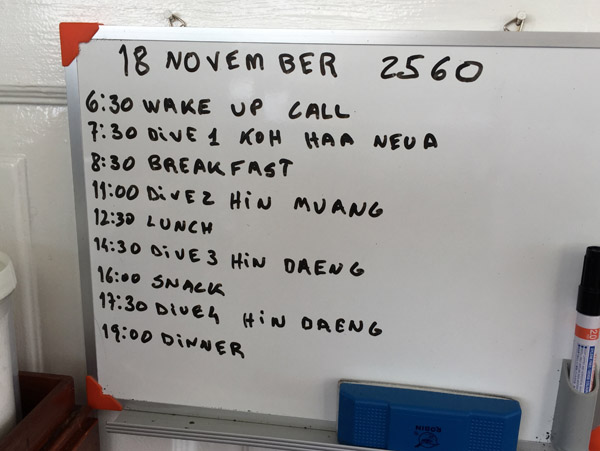 18 NOVEMBER 2560
6:30 WAKE UP CALL
7:30 DiVE 1 KOH HAA NEUA
8:30 BREAKFAST
11:00 DiVE2 HiN MUANG
12:30 LUNCH
14:30 DiVE3 HiN DAENG
16:00 SNACK
17:30 DIVE4 HiN DAENG
19:00 DiNNER